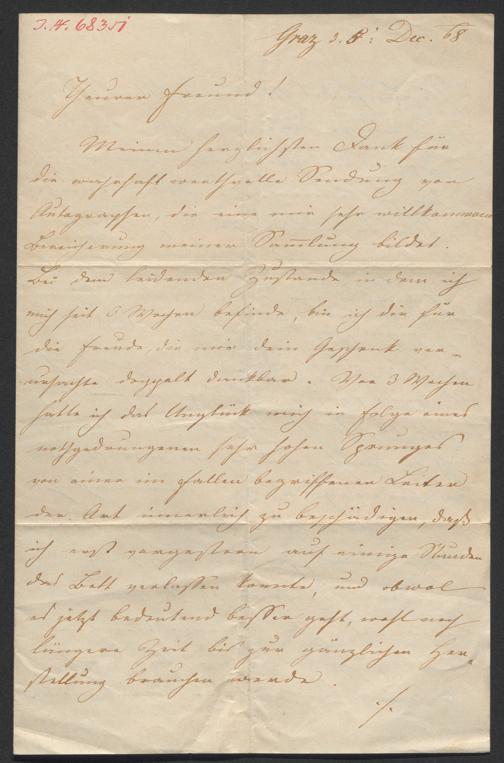 I.N. 68351
Graz d. 5t Dec. 68
Theurer Freund!
Meinen herzlichsten Dank für
die wahrhaft werthvolle Sendung von
Autographen, die eine mir sehr willkommene
Bereicherung meiner Sammlung bildet.
Bei dem leidenden Zustande in dem ich
mich seit Wochen befinde, bin ich dir für
die Freude, die mir dein Geschenk ver-
ursachte doppelt dankbar. Vor 3 Wochen
hatte ich das Unglück mich in Folge eines
nothgedrungenen sehr hohen Sprunges
von einer im Fallen begriffenen Leiter
der Art innerlich zu beschädigen, daß
ich erst vorgestern auf einige Stunden
das Bett verlassen konnte, und obwol
es jetzt bedeutend besser geht, wohl noch
längere Zeit bis zur gänzlichen Her-
stellung brauchen werde.
./.